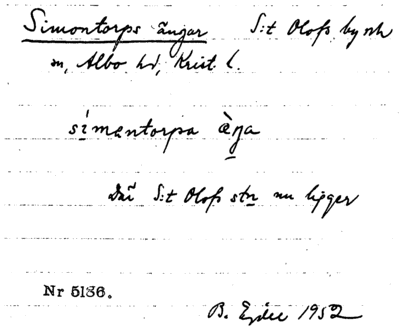 Simontorps ängar S:t Olofs by och
sn, Albo hd, Krist l.
símantorpa ὰŋa
Där S:t Olofs stn nu ligger
Nr 5136.
B. Ejder 1952